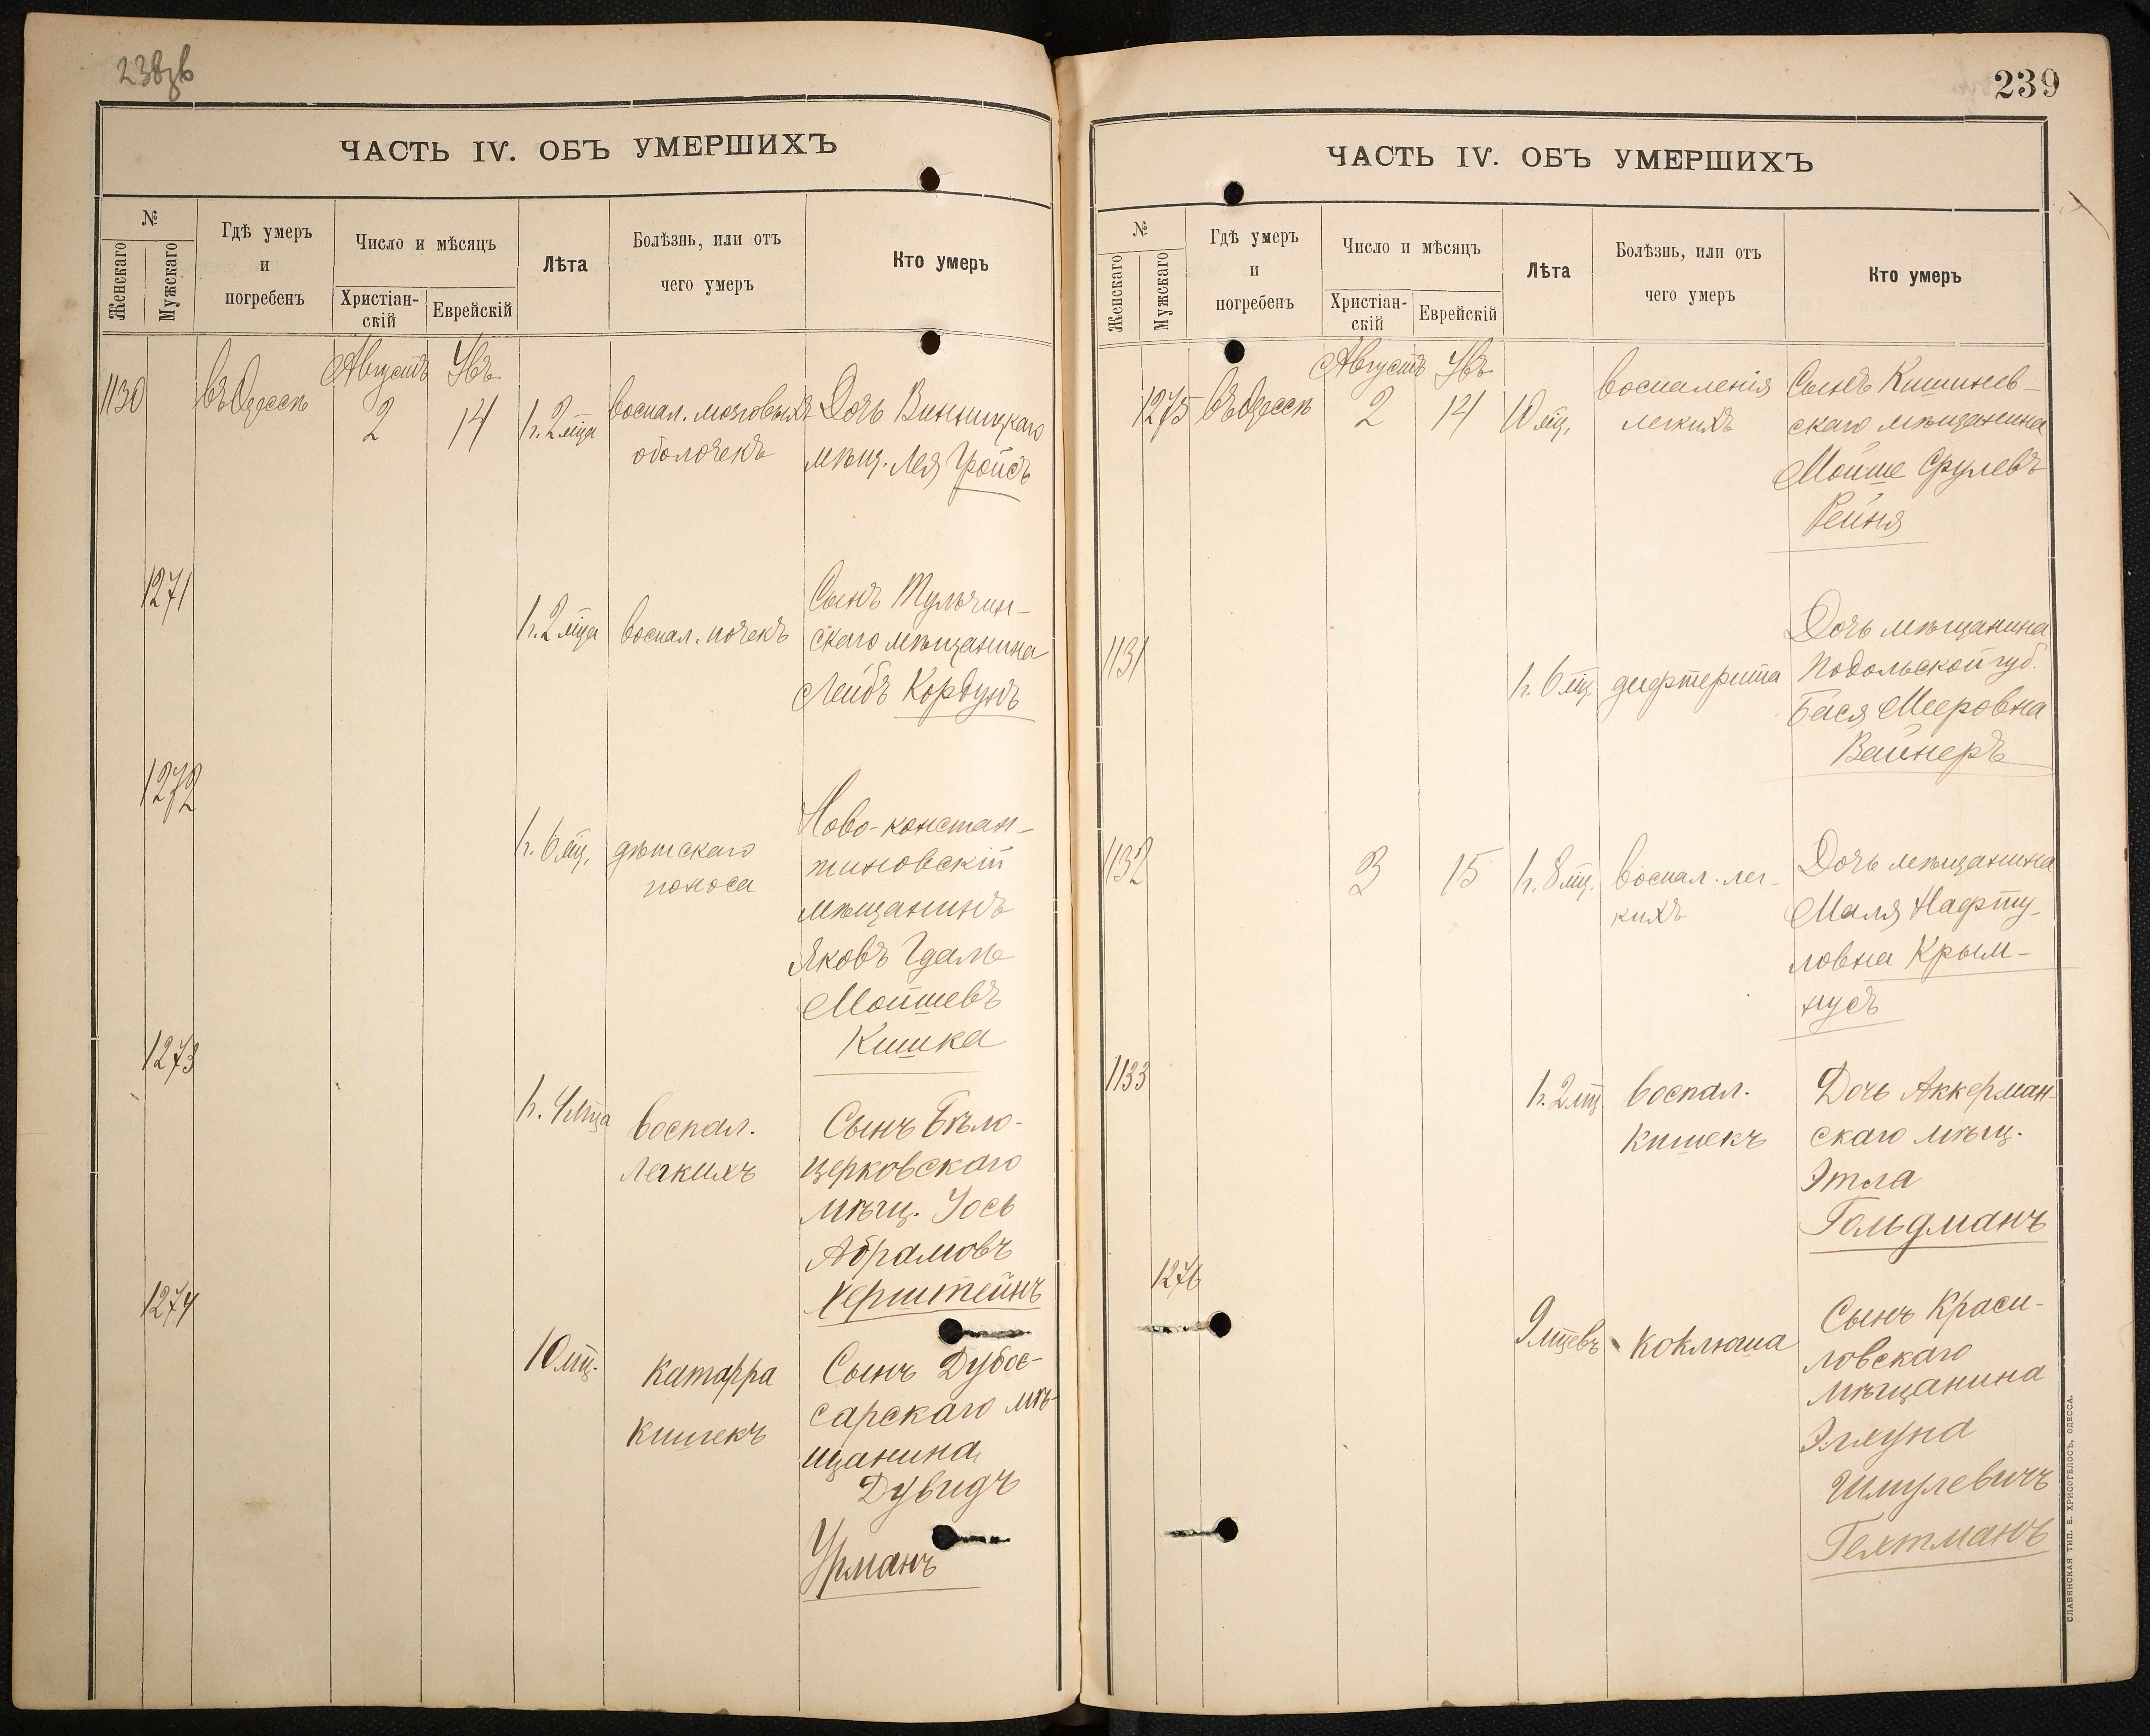 238зв
ЧАСТЬ IV. ОБЪ УМЕРШИХЪ
№
Женскаго
Мужскаго
Гдѣ умеръ
и
погребенъ
Число и мѣсяцъ
Христіан-
скій
Еврейскій
Лѣта
Болѣзнь, или отъ
чего умеръ
Кто умеръ
1130
въ Одессѣ
Августъ
2
Увъ
14
1 г. 2 мца
воспал. мозговыхъ
оболочекъ
Дочь Винницкаго
мѣщ. Лея Гройсъ
1271
1 г. 2 мца
воспал. почекъ
Сынъ Тульчин-
скаго мѣщанина
Лейбъ Корбунъ
1272
1 г. 6 мц.
дѣтскаго
поноса
Ново-констан-
тиновскій
мѣщанинъ
Яковъ Гдаль
Мойшевъ
Кишка
1273
1 г. 4 мца
воспал.
легкихъ
Сынъ Бѣло-
церковскаго
мѣщ. Іось
Абрамовъ
Керштейнъ
1274
10 мц.
катарра
кишекъ
Сынъ Дубос-
сарскаго мѣ-
щанина
Дувидъ
Урманъ
239
ЧАСТЬ IV. ОБЪ УМЕРШИХЪ
№
Женскаго
Мужскаго
Гдѣ умеръ
и
погребенъ
Число и мѣсяцъ
Христіан-
скій
Еврейскій
Лѣта
Болѣзнь, или отъ
чего умеръ
Кто умеръ
1275
въ Одессѣ
Августъ
2
Увъ
14
10 мц.
воспаленія
легкихъ
Сынъ Кишинев-
скаго мѣщанина
Мойше Срулевъ
Рейня
1131
1 г. 6 мц.
дифтерита
Дочь мѣщанина
Подольской губ.
Бася Мееровна
Вайнеръ
1132
3
15
1 г. 8 мц.
воспал. лег-
кихъ
Дочь мѣщанина
Маля Нафту-
ловна Крым-
нусъ
1133
1 г. 2 мц.
воспал.
кишекъ
Дочь Аккерман-
скаго мѣщ.
Этла
Гольдманъ
1276
9 мцевъ
коклюша
Сынъ Краси-
ловскаго
мѣщанина
Элхуна
Шмулевичъ
Гехтманъ
СЛАВЯНСКАЯ ТИП. Е. ХРИСОГЕЛОСЪ, ОДЕССА.